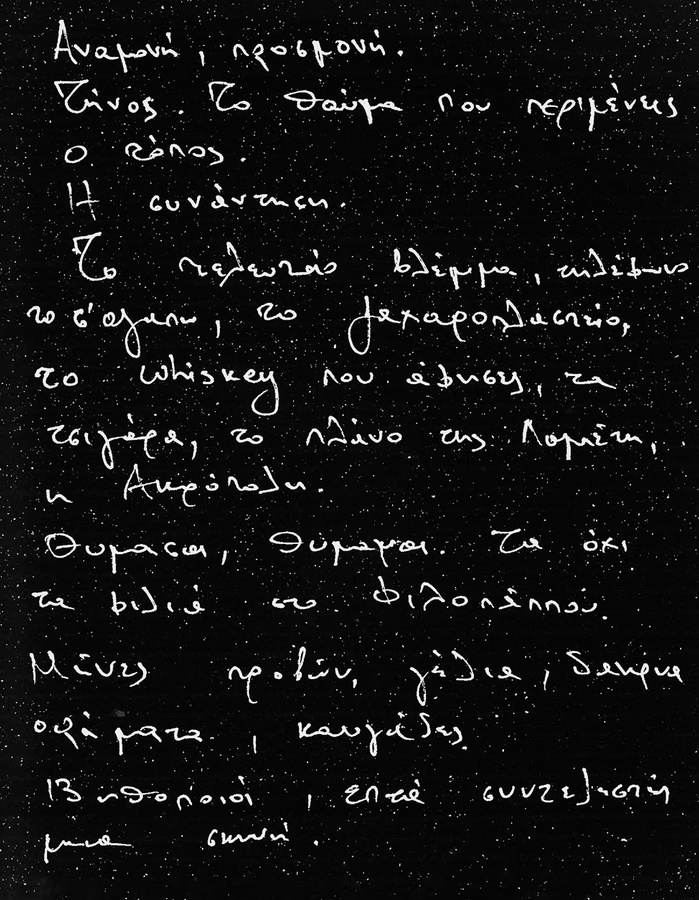 Αναμονή, προσμονή.
Τήνος. Το θαύμα που περιμένεις
ο τόπος.
Η συνάντηση.
Το τελευταίο βλέμμα, τηλέφωνο
το σ'αγαπώ, το ζαχαροπλαστείο,
το whiskey που άφησες, τα
τσιγάρα, το πλάνο της Κομήτη,
η Ακρόπολη.
Θυμάσαι, θυμάμαι. Τα όχι
τα φιλιά στο Φιλοπάππου.
Μήνες προβών, γέλια, δακρυα
οράματα, καυγάδες
13 ηθοποιοί, επτά συντελεστή
μια σκηνή.